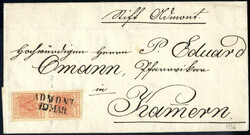 Stift Admont.
Hochwürdigen Herrn P. Eduard
Omann, Pfarrvikar
in
Kamern
ADMONT
12 MAR